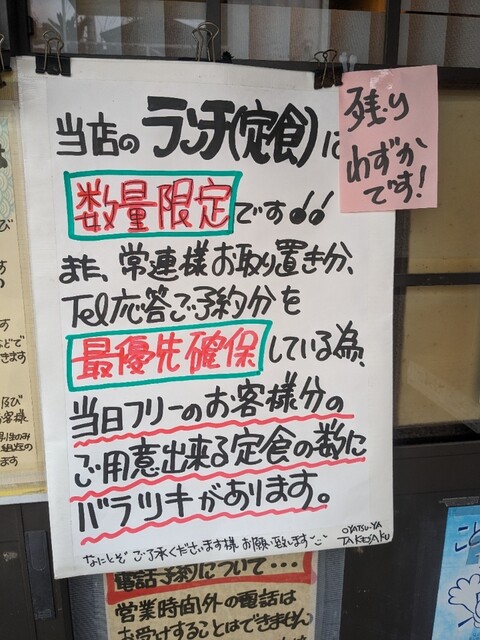 当店のランチ(定食)は
数量限定です!!
また、常連様お取り置き分、
Tel応答ご予約分を
最優先確保している為、
当日フリーのお客様分の
ご用意出来る定食の数に
バラツキがあります。
なにとぞ ご了承くださいます様 お願い致します
OYATSU-YA
TAKESAKU
残り
わずか
です!
電話予約について・・・
営業時間外の電話は
お受けすることはできません
び
す
す
などで
きます
及び
お客様
のみ
こと